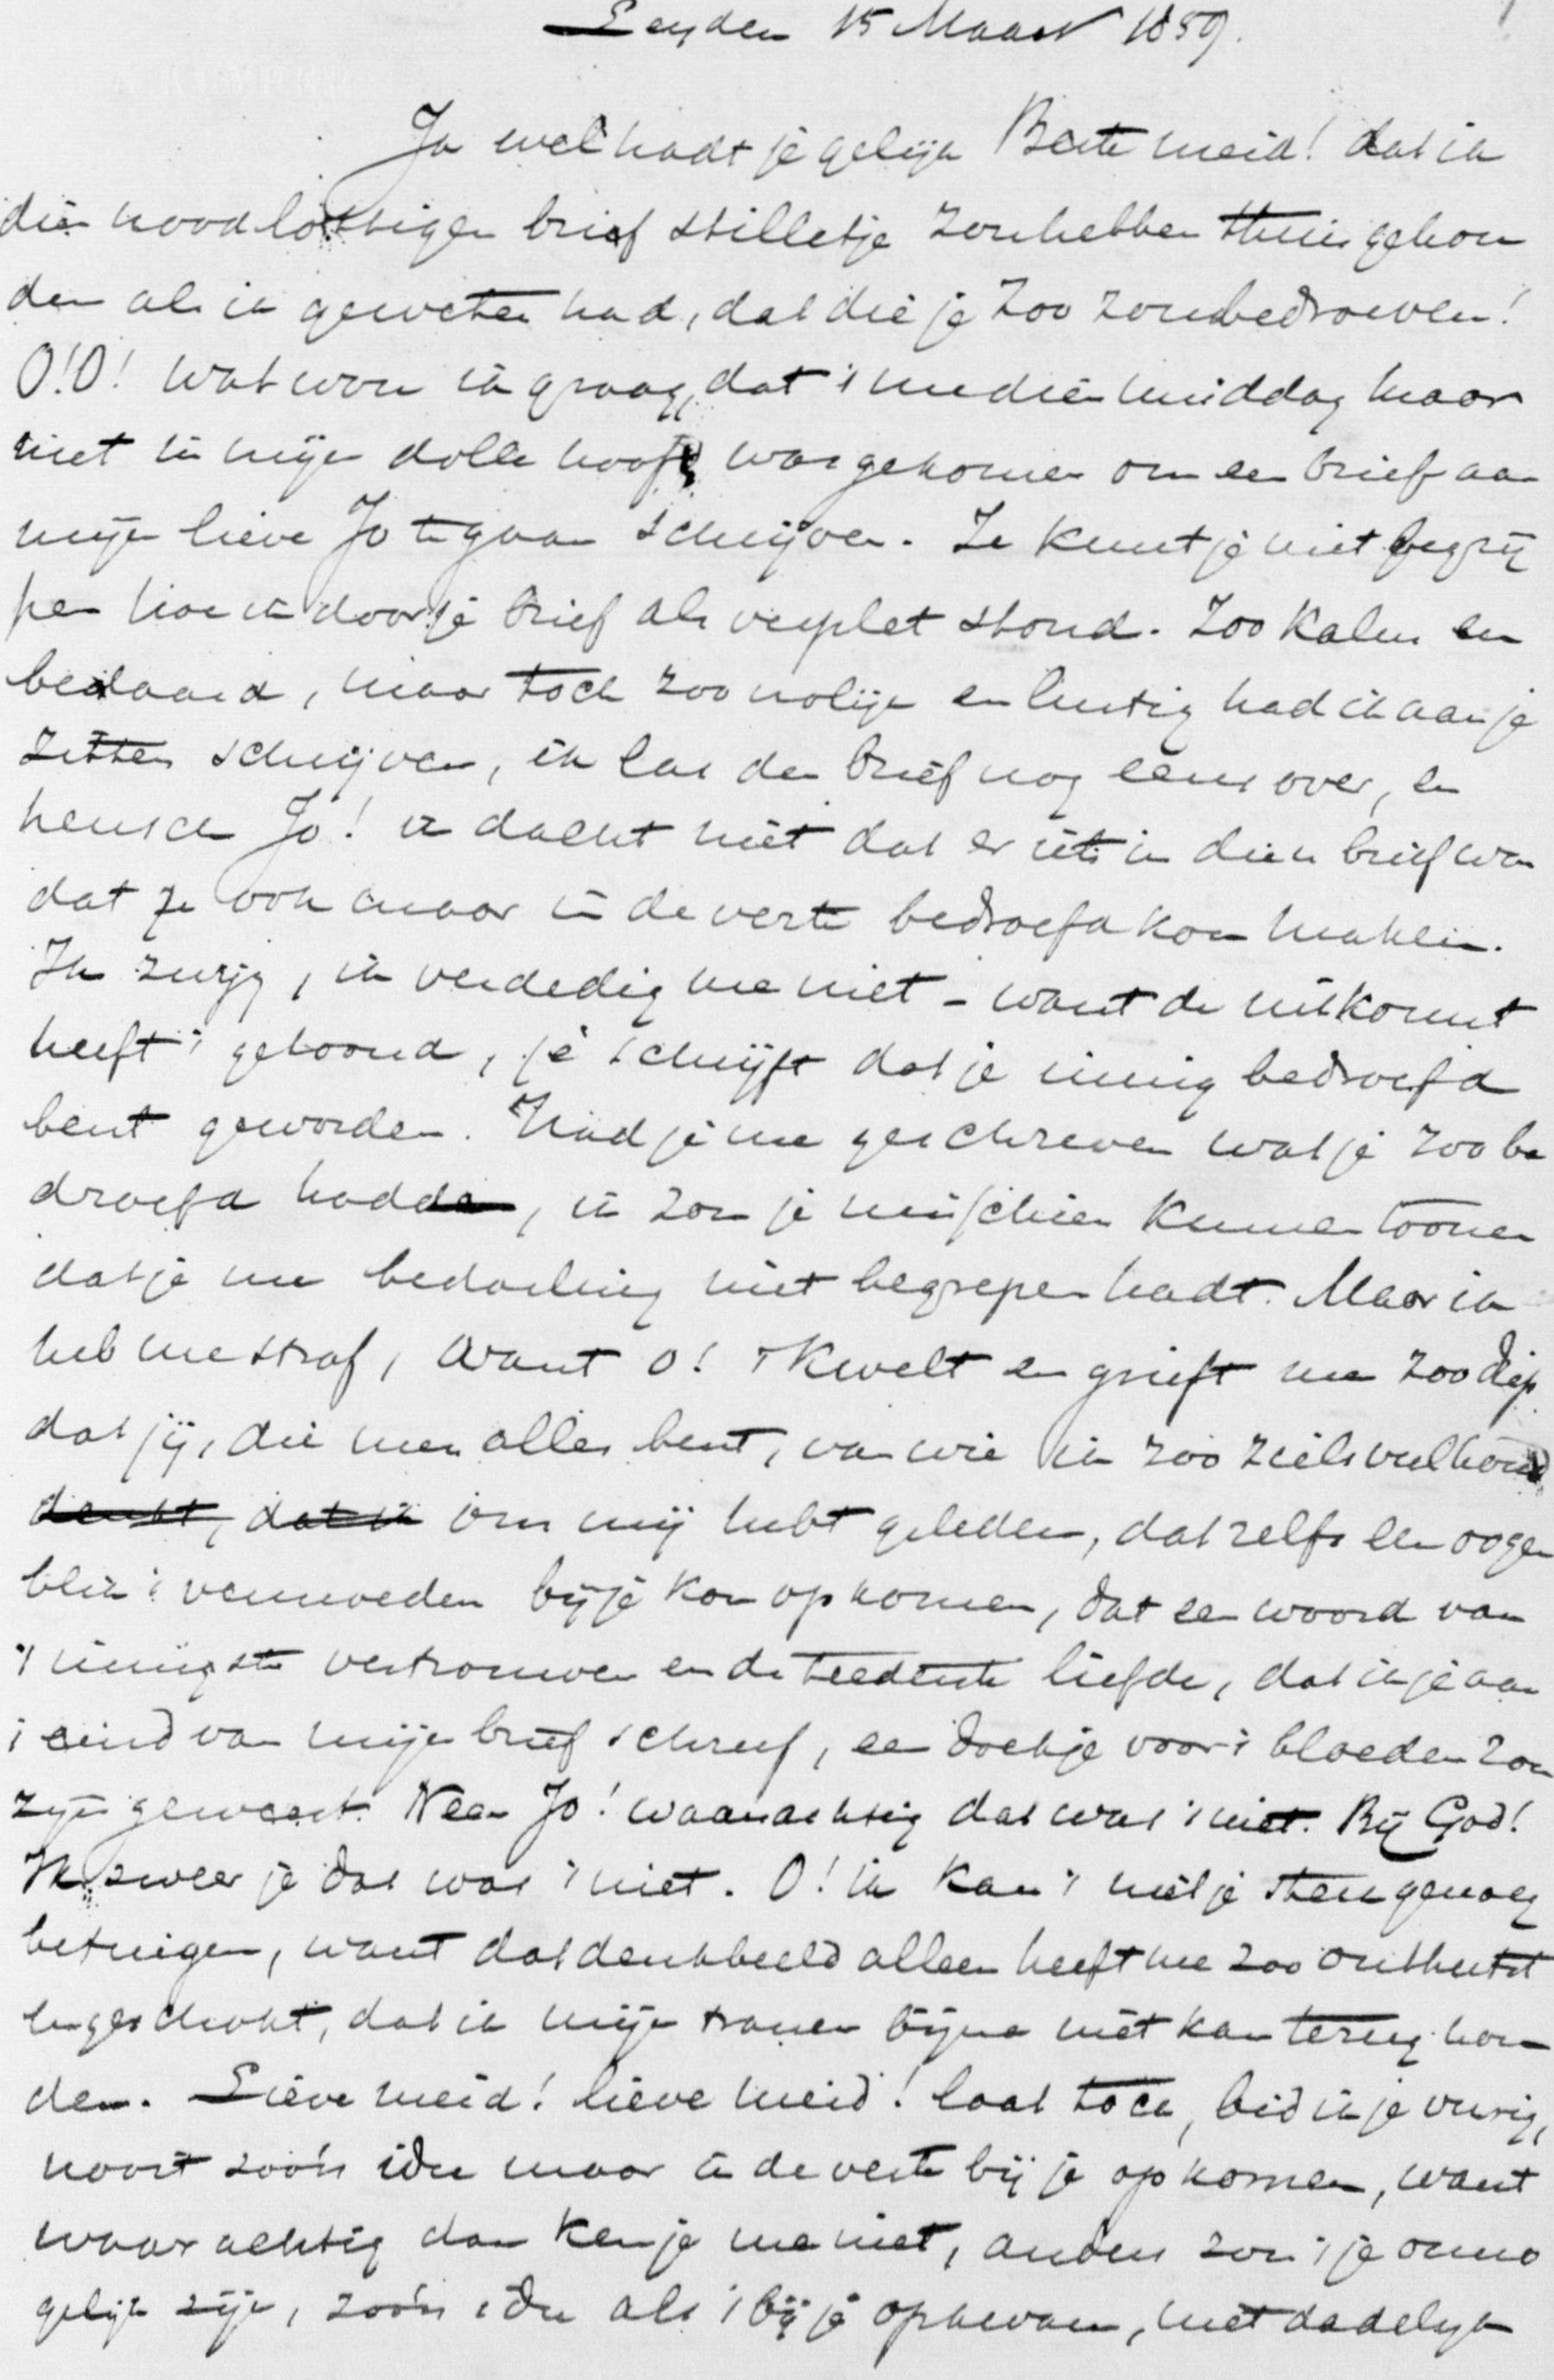 Leyden 15 Maart 1859.
Ja wel hadt je gelijk Beste meid! dat ik
dien noodlottigen brief stilletje zou hebben thuis gehou
den als ik geweten had, dat die je zoo zou bedroeven!
O! O! wat wou ik graag, dat 't me dien middag maar
niet in mijn dolle hoofd was gekomen om een brief aan
mijn lieve Jo te gaan schrijven. Je kunt je niet begrij
pen hoe ik door je brief als verplet stond. Zoo kalm en
bedaard, maar toch zoo vrolijk en lustig had ik aan je
zitten schrijven, ik las den brief nog eens over, en
heusch Jo! ik dacht niet dat er iets in dien brief was
dat je ook maar in de verte bedroefd kon maken.
Ik zwijg, ik verdedig me niet - want de uitkomst
heeft 't getoond, je schrijft dat je innig bedroefd
bent geworden. Had je me geschreven wat je zoo be
droefd hadde, ik zou je misschien kunnen toonen
dat je me bedoeling niet begrepen hadt. Maar ik
heb me straf, want o! 't kwelt en grieft me zoo diep
dat jij, die me alles bent, van wie ik zoo zielsveel houd
denkt, dat ik om mij hebt geleden, dat zelfs een oogen
blik 't vermoeden bij je kon opkomen, dat een woord van
't innigste vertrouwen en de teederste liefde, dat ik je aan
't eind van mijn brief schreef, een doekje voor 't bloeden zou
zijn geweest. Neen Jo! waarachtig dat was 't niet. Bij God!
Ik zweer je dat was 't niet. O! ik kan 't niet je sterk genoeg
betuigen, want dat denkbeeld alleen heeft me zoo ontsteld
en geschokt, dat ik mijn tranen bijna niet kan terug hou
den. Lieve meid! lieve meid! laat toch, bid ik je vurig,
nooit zoo'n idee maar in de verte bij je opkomen, want
waarachtig dan ken je me niet, anders zou 't je onmo
gelijk zijn, zoo'n idee als 't bij je opkwam, niet dadelijk